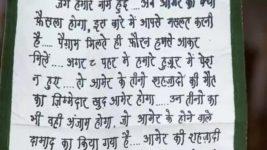 जंग हमारे नाम हुई ... अब आमेर का क्या
फ़ैसला होगा, इस बारे में आपसे मसलहत करनी
है .... पैग़ाम मिलते ही फ़ौरन हमसे आकर
मिलें .... अगर २ पहर में हमारे हुज़ूर में पेश
न हुए ... तो आमेर के तीनों शहज़ादों की मौत
का ज़िम्मेदार खुद आमेर होगा .... उन तीनों का
भी वही अंजाम होगा, जो आमेर के होने वाले
दामाद का किया गया है .... आमेर की शहज़ादी